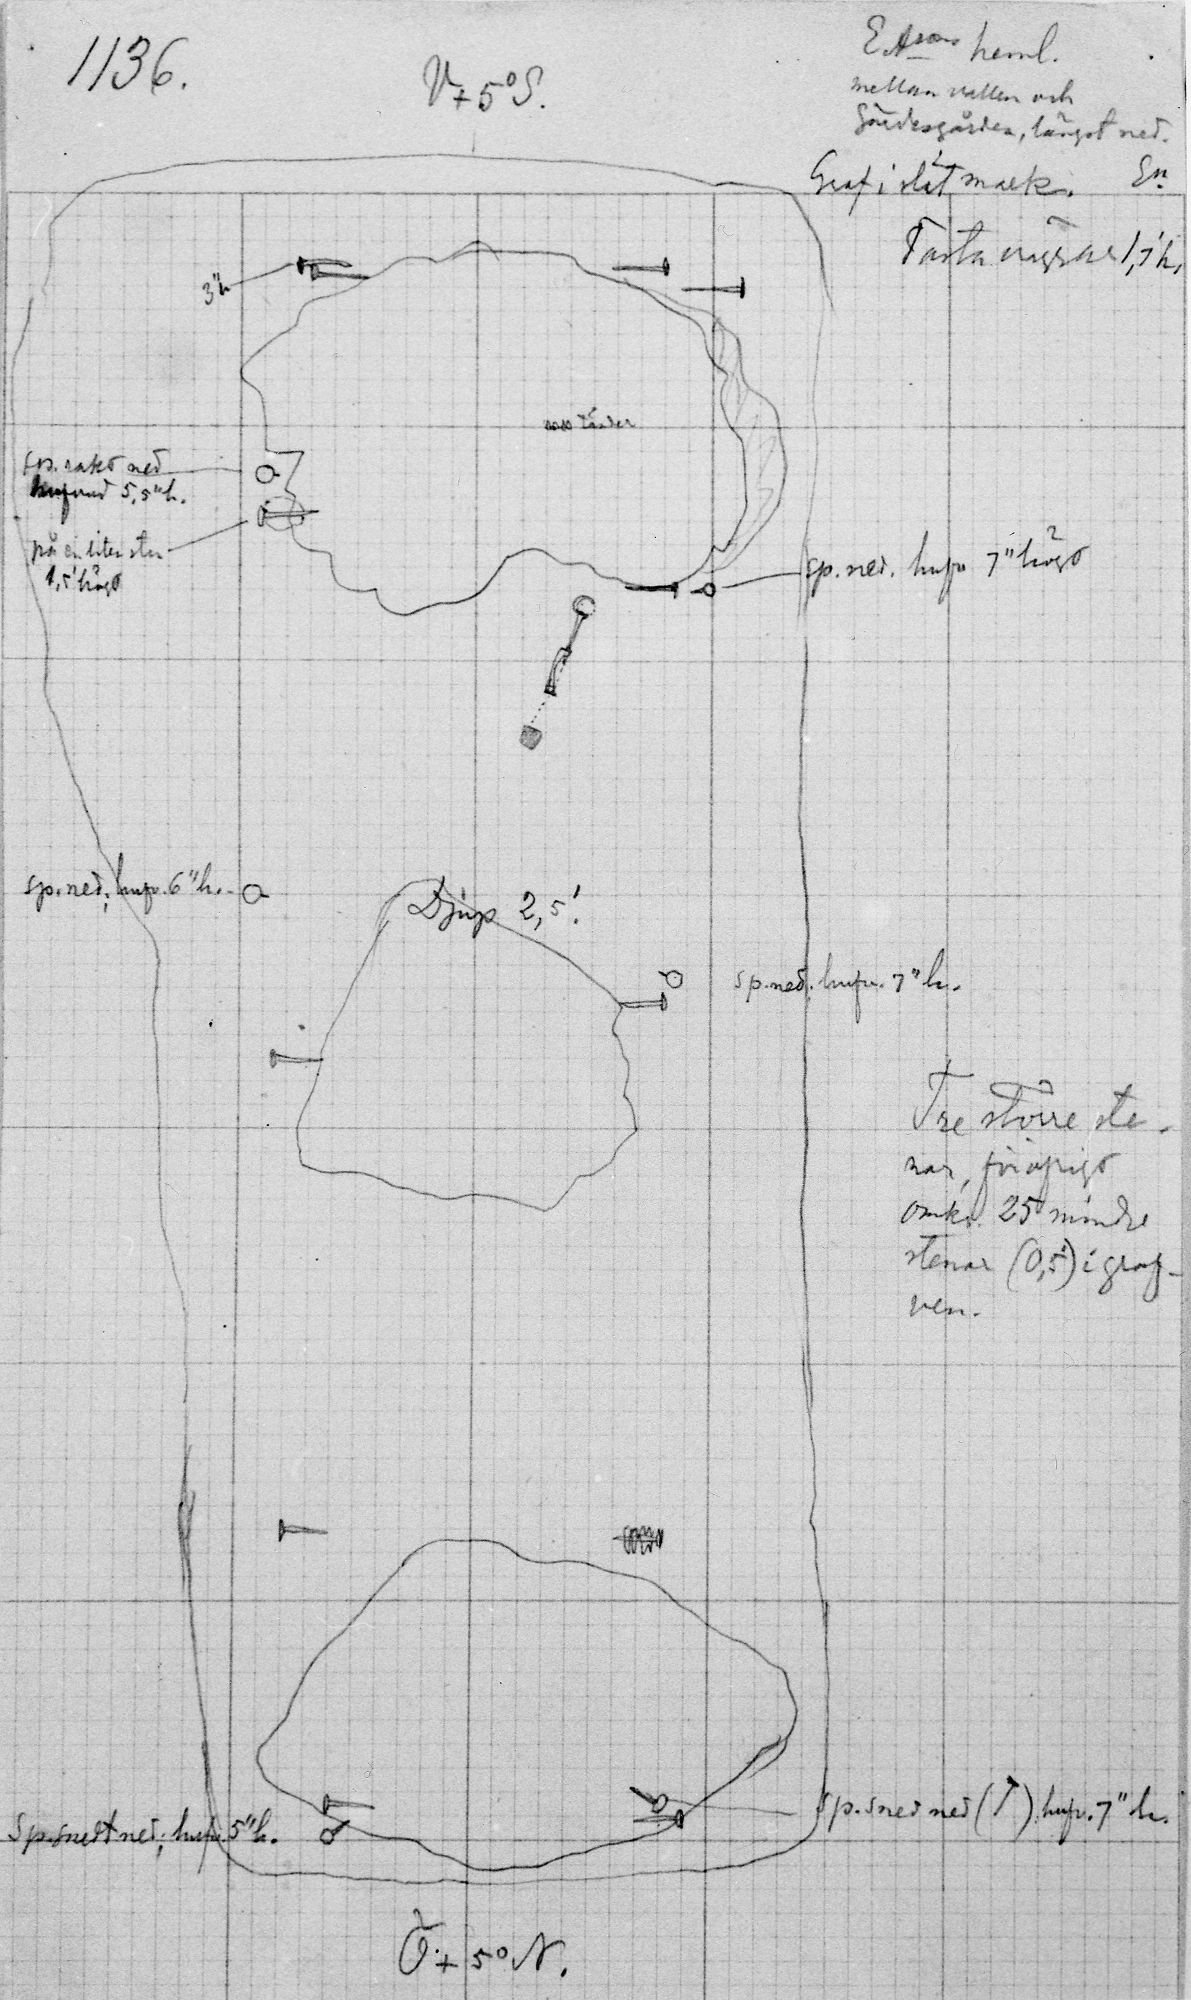 1136.
V + 5° S.
heml.
mellan vallen och
Gärdesgården, längst ned.
Graf i slät mark. En
Fasta väggar 1,7' h.
3" h
tänder
sp. rakt ned
hufvud 5,5" h.
på en liten sten
1,5' högt
sp. ned. hufv 7" högt
sp. ned; hufv. 6" h.
Djup 2,5'.
sp. ned; hufv. 7" h.
Tre större ste-
nar, för öfrigt
omkr. 25 mindre
stenar (0,5') i graf-
ven.
Sp. snedt ned; hufv. 5" h.
sp. sned ned (↑) hufv. 7" h.
Ö + 5° N.